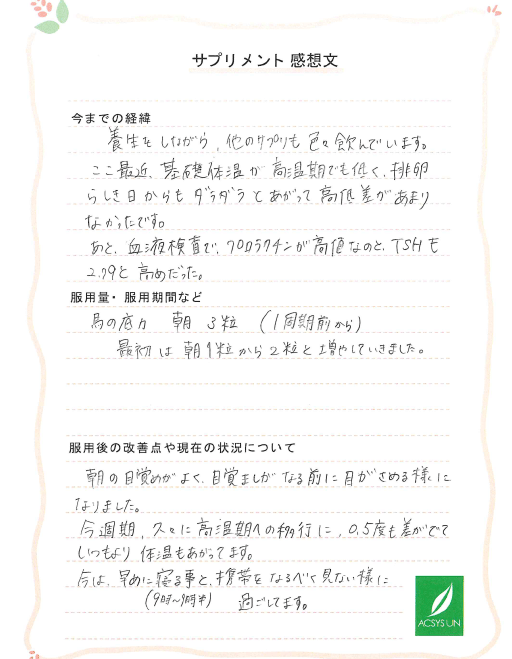 サプリメント 感想文
今までの経緯
養生をしながら、他のサプリも色々飲んでいます。
ここ最近、基礎体温が高温期でも低く、排卵
らしき日からもダラダラとあがって高低差があまり
なかったです。
あと、血液検査で、プロラクチンが高値なのと、TSHも
2.79と高めだった。
服用量・服用期間など
馬の底力 朝 3粒 (1周期前から)
最初は朝1粒から2粒と増やしていきました。
服用後の改善点や現在の状況について
朝の目覚めがよく、目覚ましがなる前に目がさめる様に
なりました。
今週期、久々に高温期への移行に、0.5度も差がでて
いつもより体温もあがってます。
今は、早めに寝る事と、携帯をなるべく見ない様に
(9時〜9時半) 過ごしてます。
ACSYS'UN